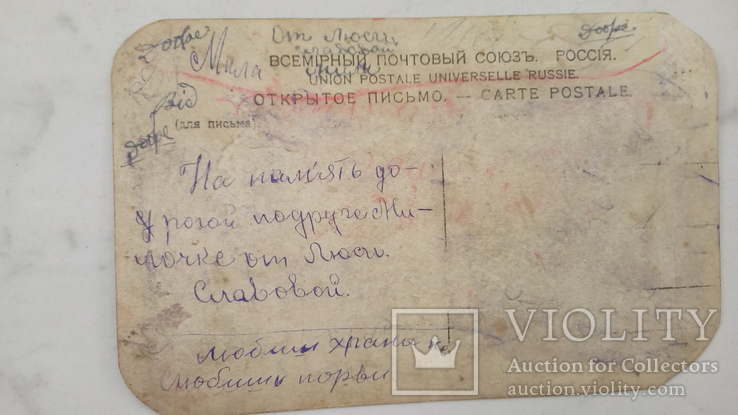 добре
От Люси
добре
Мила
Славовой
ВСЕМІРНЫЙ ПОЧТОВЫЙ СОЮЗЪ. РОССІЯ.
UNION POSTALE UNIVERSELLE RUSSIE.
ОТКРЫТОЕ ПИСЬМО. — CARTE POSTALE.
від
(для письма)
добре
На пам'ять до-
рогой подруге Ни-
ночке от Люси.
Славовой.
любиш храни не
любишь порви
VIOLITY
Auction for Collectors
auction.violity.com